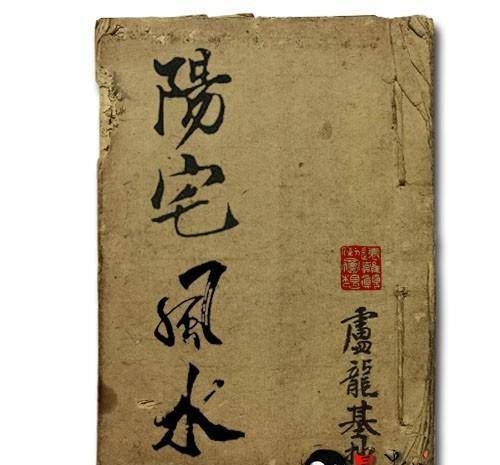 陽宅風水
盧龍基抄